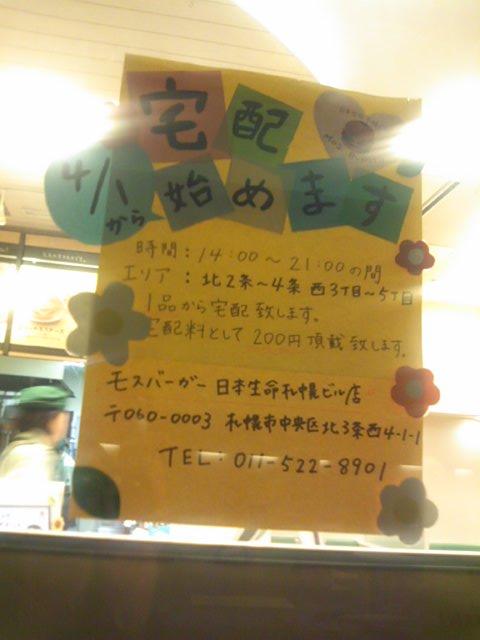 宅配
4/1
から
始めます
時間：14:00〜21:00の間
エリア：北2条〜4条 西3丁目〜5丁目
1品から宅配致します。
宅配料として200円頂載致します。
モスバーガー 日本生命札幌ビル店
〒060-0003 札幌市中央区北3条西4-1-1
TEL：011-522-8901